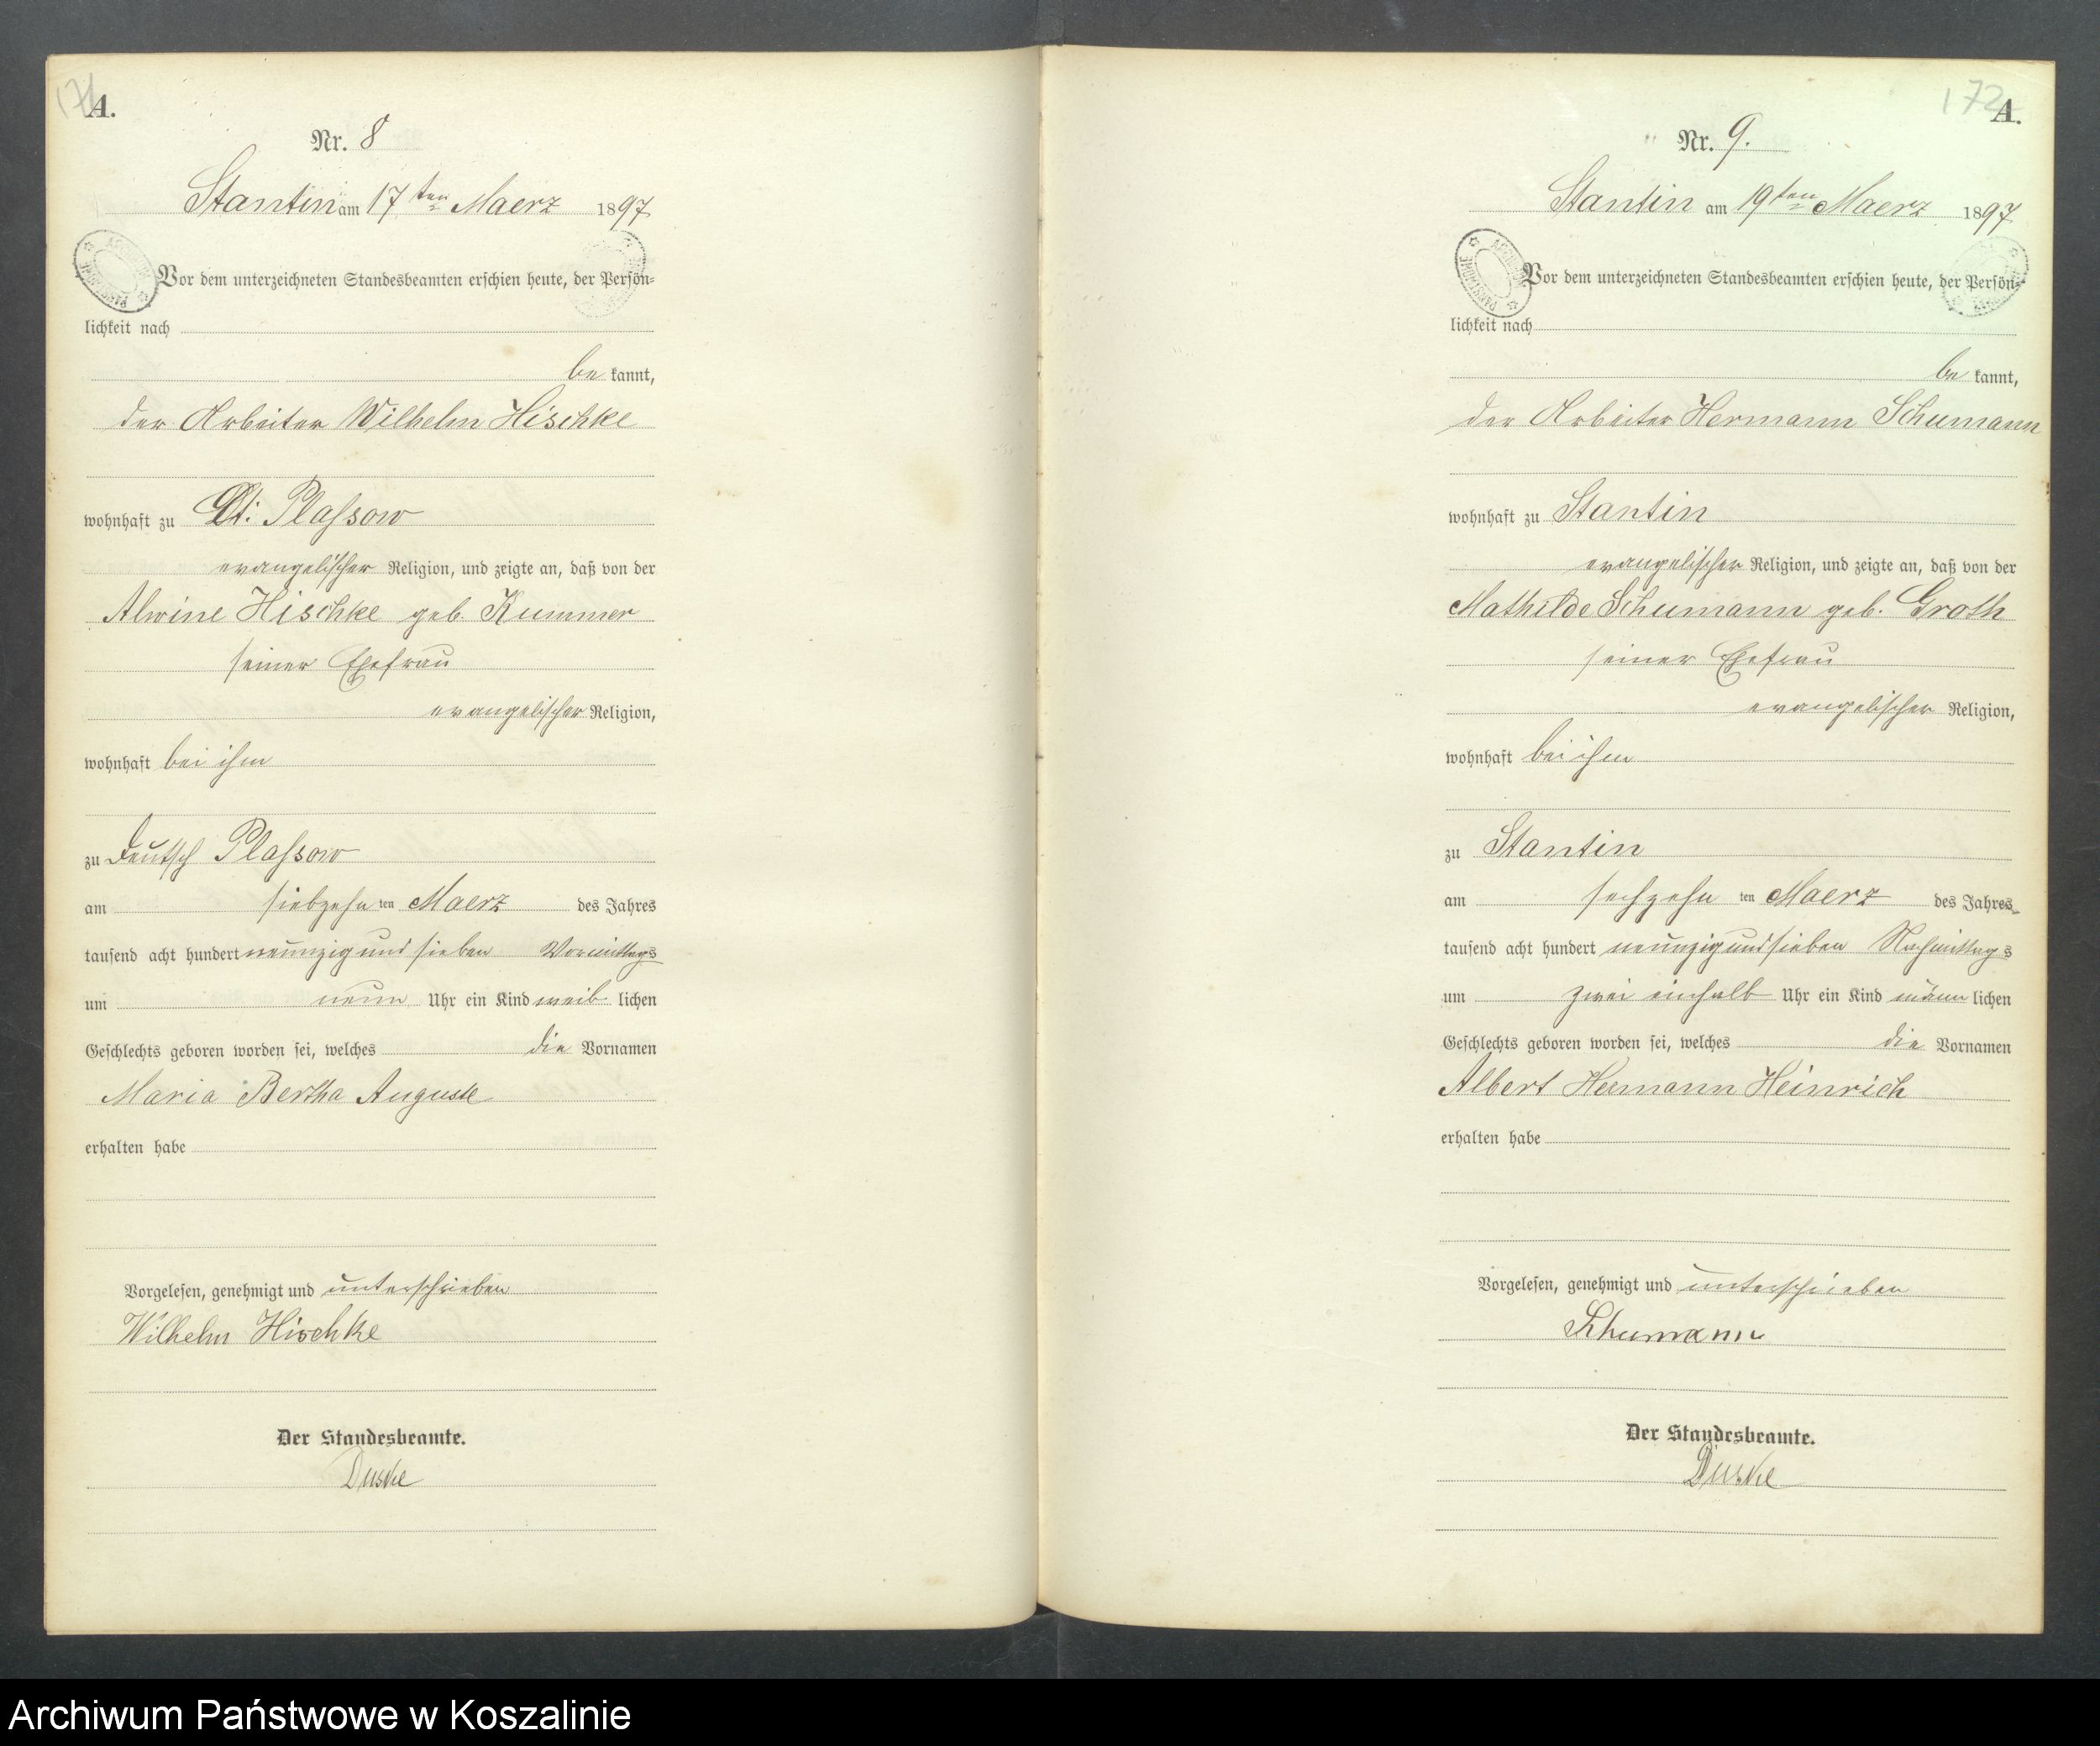 171
A.
Nr. 8
Stantin am 17ten Maerz 1897
Vor dem unterzeichneten Standesbeamten erschien heute, der Persön-
lichkeit nach
be kannt,
der Arbeiter Wilhelm Hischke
wohnhaft zu Dt: Plassow
evangelischer Religion, und zeigte an, daß von der
Alwine Hischke geb. Kummer
seiner Ehefrau
evangelischer Religion,
wohnhaft bei ihm
zu Deutsch Plassow
am siebzehn ten Maerz des Jahres
tausend acht hundert neunzig und sieben Vormittags
um neun Uhr ein Kind weib lichen
Geschlechts geboren worden sei, welches die Vornamen
Maria Bertha Auguste
erhalten habe
Vorgelesen, genehmigt und unterschrieben
Wilhelm Hischke
Der Standesbeamte.
Duske
172
A.
Nr. 9.
Stantin am 19ten Maerz 1897
Vor dem unterzeichneten Standesbeamten erschien heute, der Persön-
lichkeit nach
be kannt,
der Arbeiter Hermann Schumann
wohnhaft zu Stantin
evangelischer Religion, und zeigte an, daß von der
Mathilde Schumann geb. Groth
seiner Ehefrau
evangelischer Religion,
wohnhaft bei ihm
zu Stantin
am sechzehn ten Maerz des Jahres
tausend acht hundert neunzig und sieben Nachmittags
um zwei einhalb Uhr ein Kind männ lichen
Geschlechts geboren worden sei, welches die Vornamen
Albert Hermann Heinrich
erhalten habe
Vorgelesen, genehmigt und unterschrieben
Schumann
Der Standesbeamte.
Duske
Archiwum Państwowe w Koszalinie